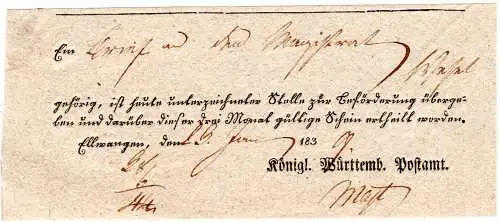 Ein Brief an den Magistrat
Wesel
gehörig, ist heute unterzeichneter Stelle zur Beförderung überge-
ben und darüber dieser drei Monat gültige Schein ertheilt worden.
Ellwangen, den 1839
Königl. Württemb. Postamt.